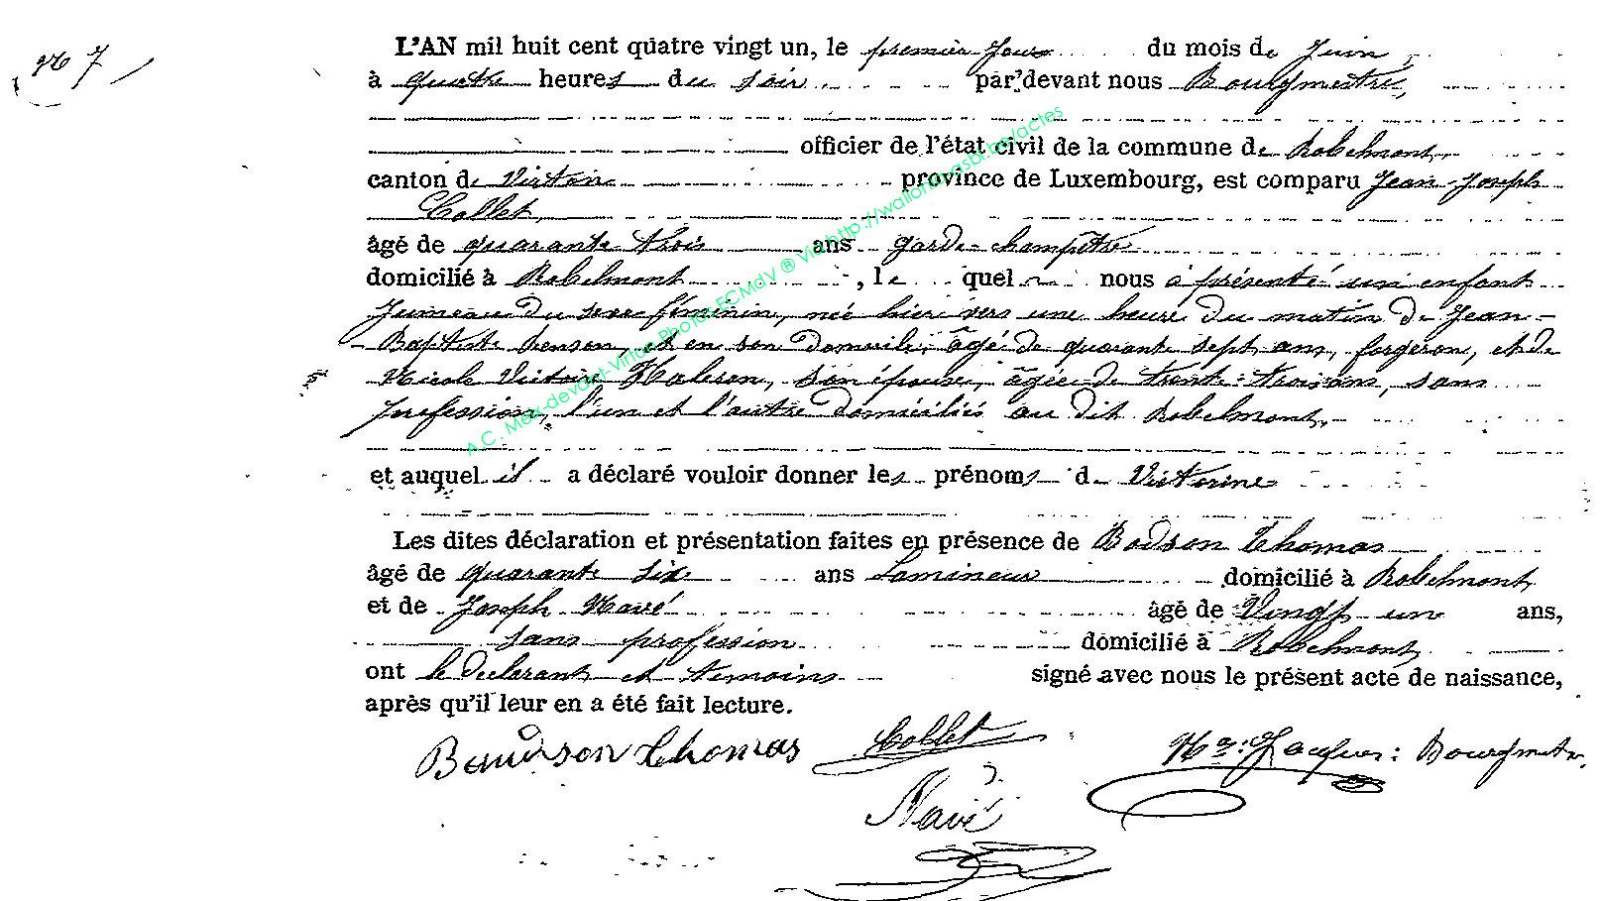 No 7
L'AN mil huit cent quatre vingt un, le premier jour du mois de Juin,
à quatre heures du soir par devant nous Bourgmestre,
officier de l'état civil de la commune de Robelmont
canton de Virton province de Luxembourg, est comparu Jean-Joseph
Collet,
âgé de quarante trois ans garde-champêtre
domicilié à Robelmont, le quel nous a présenté un enfant
Jumeau du sexe féminin, née hier vers une heure du matin de Jean-
Baptiste Henson, et en son domicile, âgé de quarante sept ans, forgeron, et de
Nicole Victoire son épouse, âgée de trente-trois ans, sans
profession, l'un et l'autre domiciliés au dit Robelmont,
et auquel il a déclaré vouloir donner les prénoms de Victorine
Les dites déclaration et présentation faites en présence de Bodson Thomas
âgé de quarante six ans Lamineur domicilié à Robelmont
et de Joseph Navé âgé de Vingt un ans,
sans profession domicilié à Robelmont
ont le déclarant et témoins signé avec nous le présent acte de naissance,
après qu'il leur en a été fait lecture.
Thomas Collet Jacques: Bourgmestre.
Navé
A.C. Meix-devant-Virton Photos ECMdV ® Via http://wallonica.be/actes